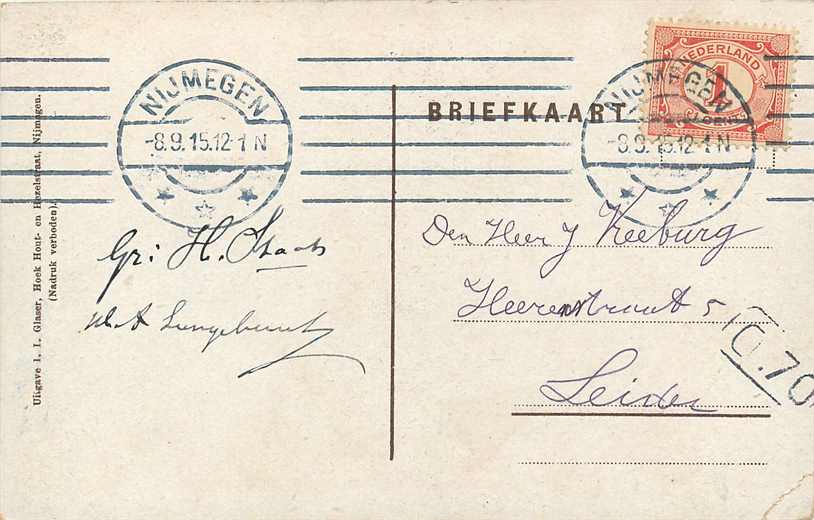 NIJMEGEN
-8.9.15.12-1 N
BRIEFKAART
NEDERLAND
1
NIJMEGEN
-8.9.15.12-1 N
Gr: H. Staats
Den Heer J Keeburg
Heerenstraat 5
Leiden
0.70
Uitgave I. I. Glaser, Hoek Hout- en Hezelstraat, Nijmegen.
(Nadruk verboden).